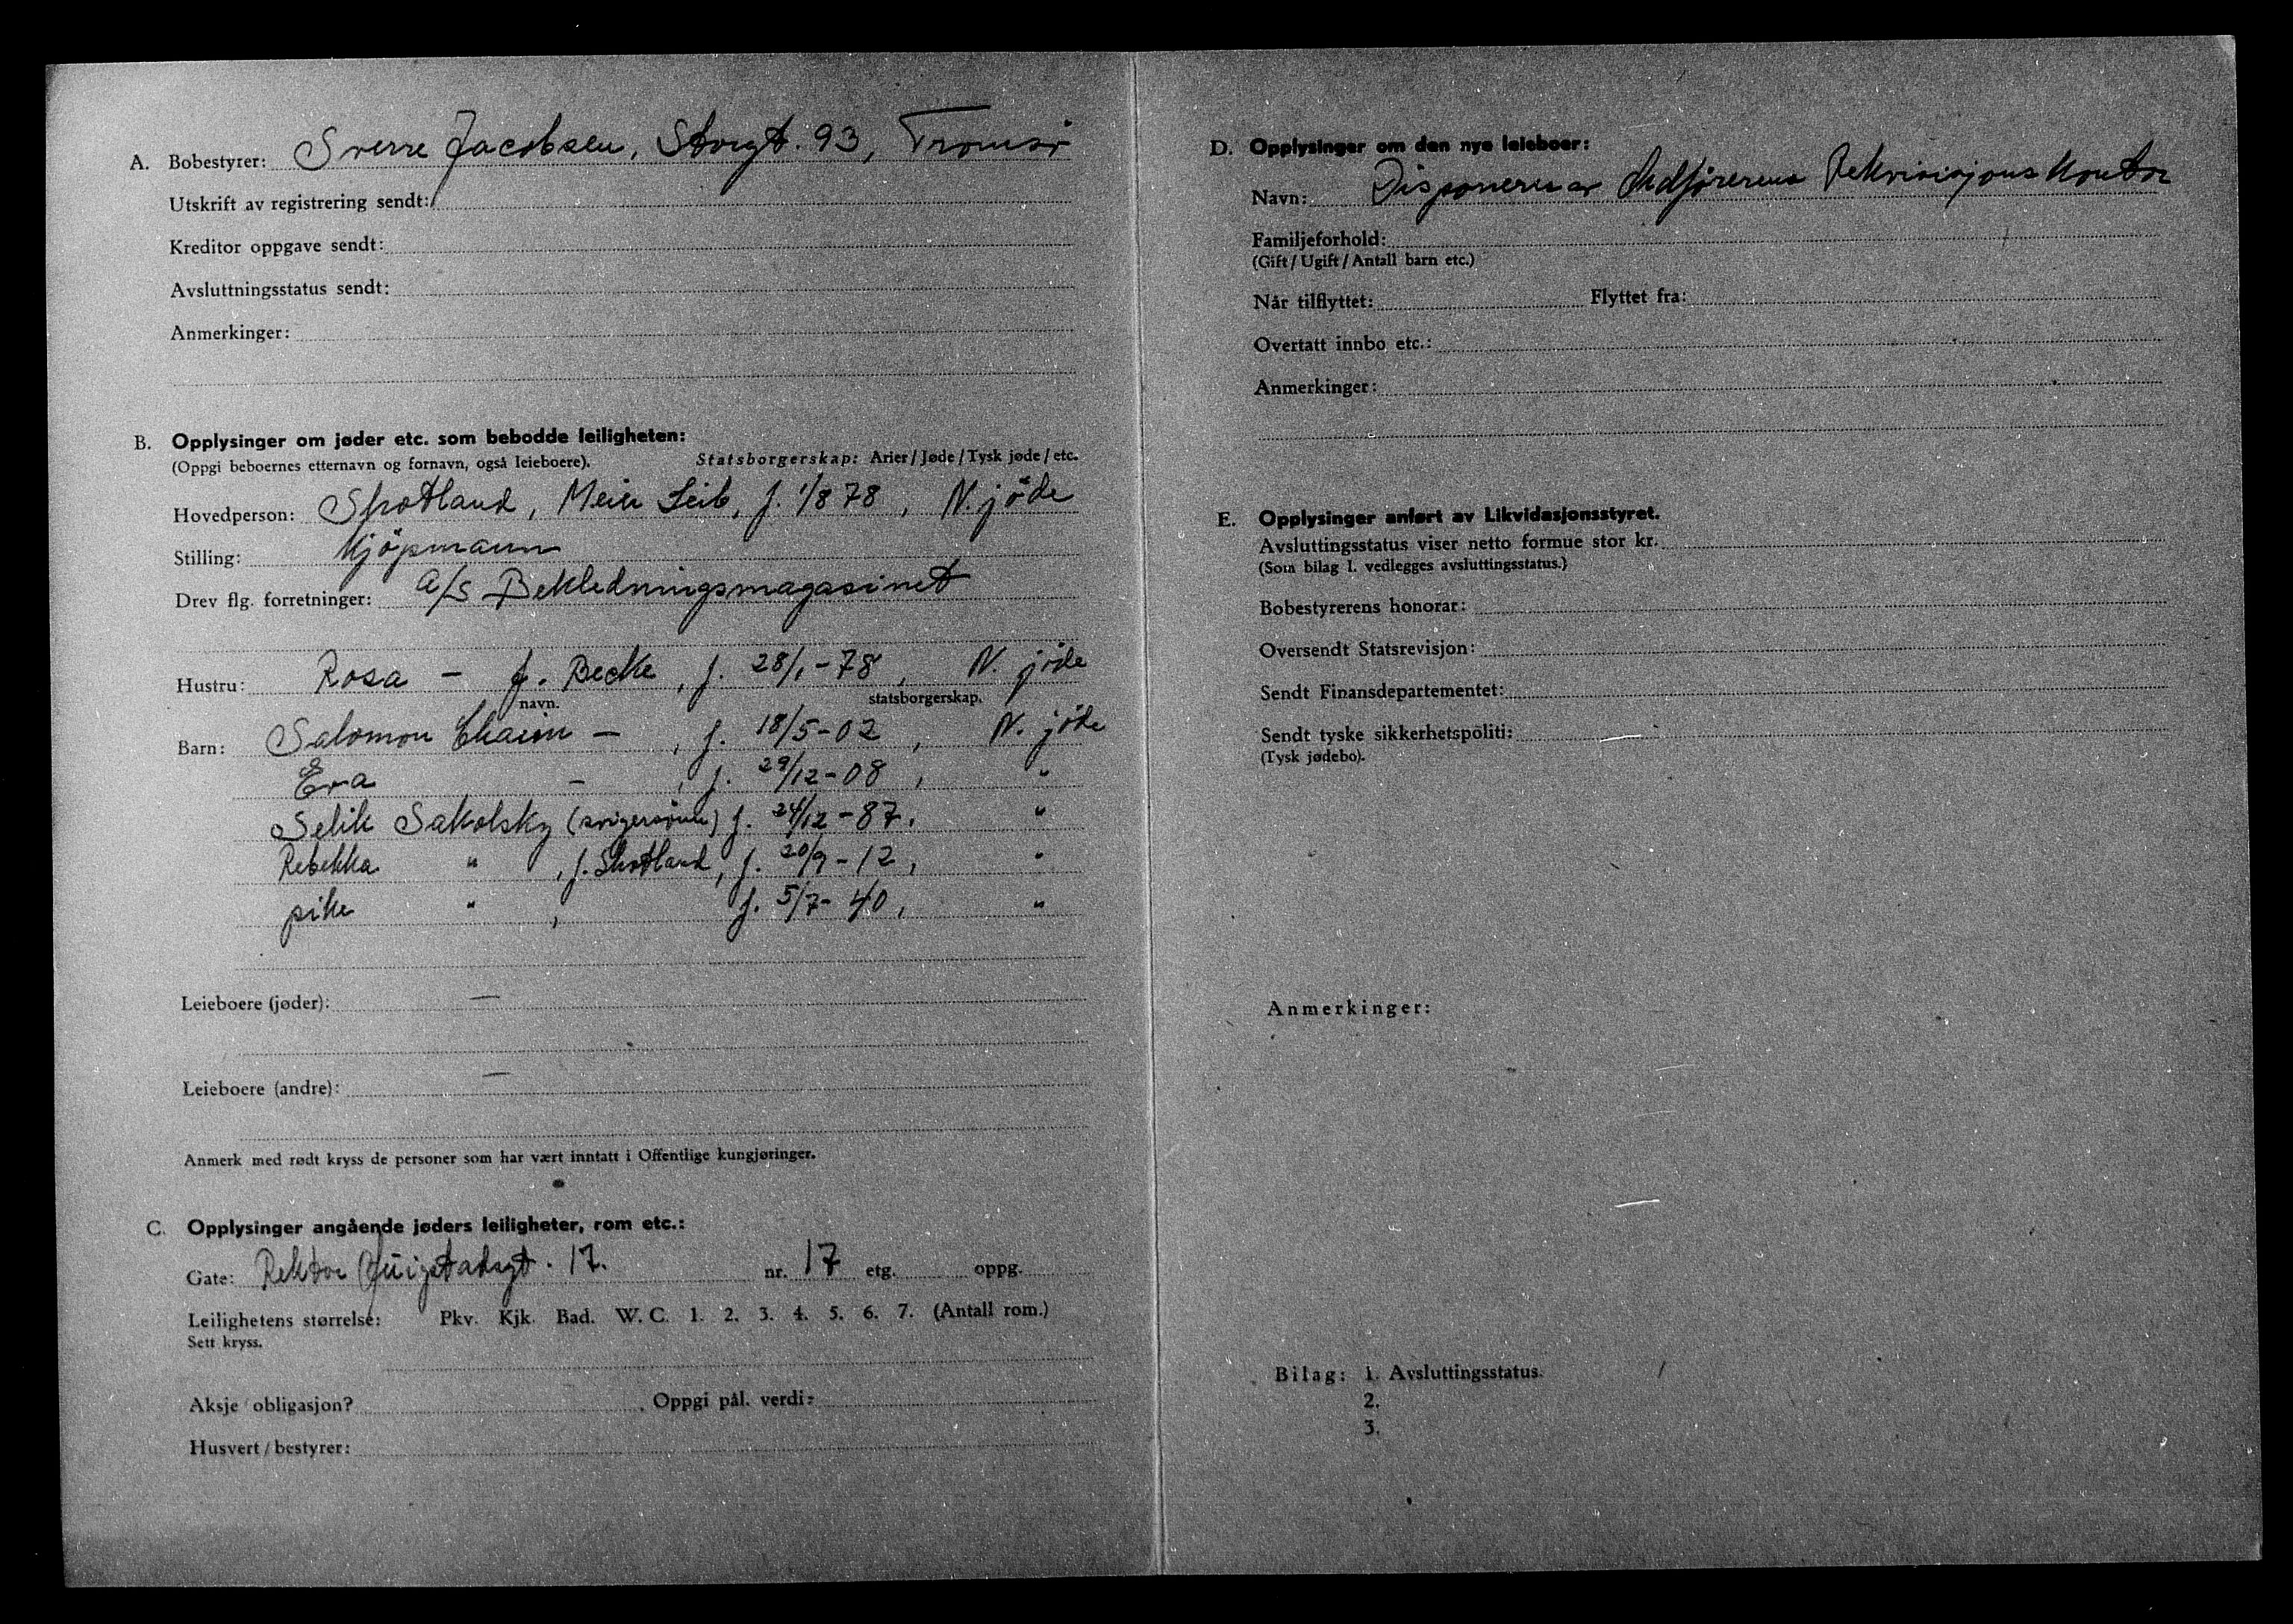 A. Bobestyrer: Sverre Jacobsen, Storgt. 93, Tromsö
Utskrift av registrering sendt:
Kreditor oppgave sendt:
Avsluttningsstatus sendt:
Anmerkinger:
B. Opplysinger om jøder etc. som bebodde leiligheten:
(Oppgi beboernes etternavn og fornavn, også leieboere). Statsborgerskap: Arier / Jøde / Tysk jøde / etc.
Hovedperson: Shotland, Meier Leib, f. 1/8 78, N. jöde
Stilling: Kjöpmann
Drev flg. forretninger: A/S Bekledningsmagasinet
Hustru: Rosa — f. Becke, f. 28/1-78, N. jöde
navn. statsborgerskap.
Barn: Salomon Chaim —, f. 18/5-02, N. jöde
Eva —, f. 29/12-08, "
Selik Sakolsky (svigersönn) f. 24/12-87. "
Rebekka " , f. Shotland, f. 20/9-12, "
pike " , f. 5/7-40, "
Leieboere (jøder): —
Leieboere (andre): —
Anmerk med rødt kryss de personer som har vært inntatt i Offentlige kungjøringer.
C. Opplysinger angående jøders leiligheter, rom etc.:
Gate: Rektor 17. nr. 17 etg. oppg.
Leilighetens størrelse: Pkv. Kjk. Bad. W. C. 1. 2. 3. 4. 5. 6. 7. (Antall rom.)
Sett kryss.
Aksje / obligasjon? Oppgi pål. verdi:
Husvert / bestyrer:
D. Opplysinger om den nye leieboer:
Navn: Disponeres av Rekvisisjons Kontor
Familjeforhold:
(Gift / Ugift / Antall barn etc.)
Når tilflyttet: Flyttet fra:
Overtatt innbo etc.:
Anmerkinger:
E. Opplysinger anført av Likvidasjonsstyret.
Avsluttingsstatus viser netto formue stor kr.
(Som bilag 1. vedlegges avsluttingsstatus.)
Bobestyrerens honorar:
Oversendt Statsrevisjon:
Sendt Finansdepartementet:
Sendt tyske sikkerhetspoliti:
(Tysk jødebo).
Anmerkinger:
Bilag: 1. Avsluttingsstatus.
2.
3.